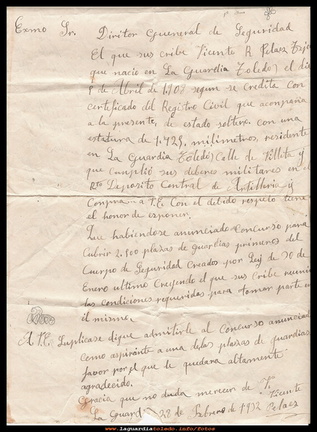 Exmo Sr. Diritor Gueneral de Seguridad
El que sus cribe Vicente R. Pelaez
que nacio en La Guardia (Toledo) el dia
8 de Abril de 1908 segun se credita con
certificado del Registro Civil que acompaña
a la presente, de estado soltero, con una
estatura de 1.725, milimetros, residente
en La Guardia (Toledo) Calle de
que cumplió sus deberes militares en el
Deposito Central de Artilleria y
Con el debido respeto tiene
el honor de esponer.
Que habiendose anunciado Concurso para
Cubrir 2.500 plazas de guardias primeros del
Cuerpo de Seguridad Creado por Ley de 30 de
Enero ultimo Creyendo el que sus cribe reunir
las condiciones requeridas para tomar parte en
el mismo.
A V.E. Suplicase digne admitirle al Concurso anunciado
como aspirante a una de las plazas de guardias
favor por el que le quedara altamente
agradecido.
Gracia que no duda merecer de V.
La Guardia 28 de Febrero de 1932
Vicente
Pelaez
www.laguardiatoledo.info/fotos